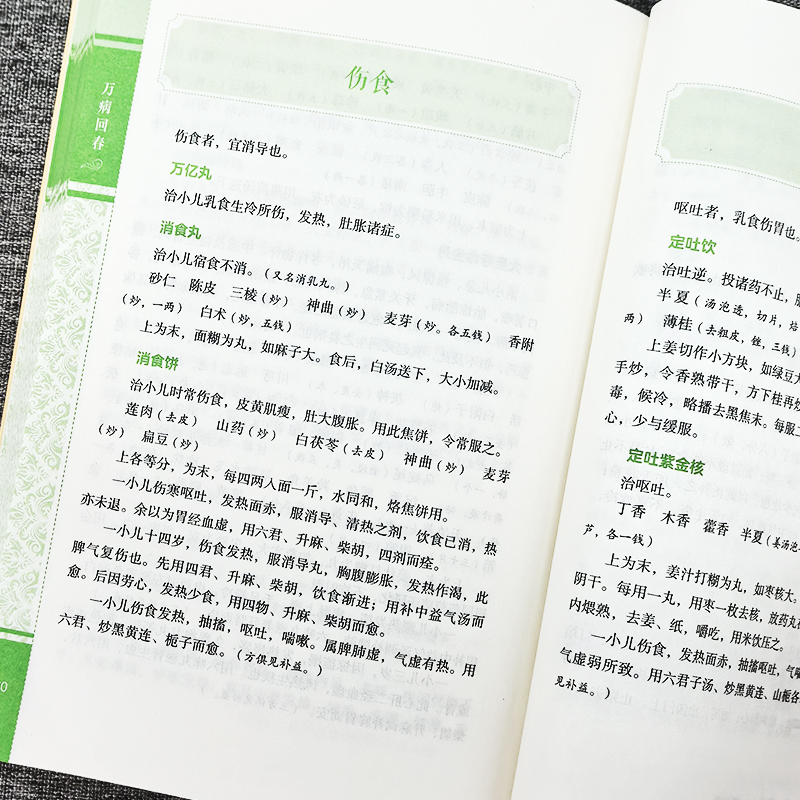 万病回春
伤食
伤食者，宜消导也。
万亿丸
治小儿乳食生冷所伤，发热，肚胀诸症。
消食丸
治小儿宿食不消。（又名消乳丸。）
砂仁 陈皮 三棱（炒） 神曲（炒） 麦芽（炒。各五钱） 香附
（炒，一两） 白术（炒，五钱）
上为末，面糊为丸，如麻子大。食后，白汤送下，大小加减。
消食饼
治小儿时常伤食，皮黄肌瘦，肚大腹胀。用此焦饼，令常服之。
莲肉（去皮） 山药（炒） 白茯苓（去皮） 神曲（炒） 麦芽
（炒） 扁豆（炒）
上各等分，为末，每四两入面一斤，水同和，烙焦饼用。
一小儿伤寒呕吐，发热面赤，服消导、清热之剂，饮食已消，热
亦未退。余以为胃经血虚，用六君、升麻、柴胡，四剂而痊。
一小儿十四岁，伤食发热，服消导丸，胸腹膨胀，发热作渴，此
脾气复伤也。先用四君、升麻、柴胡，饮食渐进；用补中益气汤而
愈。后因劳心，发热少食，用四物、升麻、柴胡而愈。
一小儿伤食发热，抽搐，呕吐，喘嗽。属脾肺虚，气虚有热。用
六君、炒黑黄连、栀子而愈。（方俱见补益。）
0
呕吐者，乳食伤胃也。
定吐饮
治吐逆。投诸药不止，
半夏（汤泡透，切片，焙
两） 薄桂（去粗皮，锉，三钱）
上姜切作小方块，如绿豆大
手炒，令香熟带干，方下桂再炒
毒，候冷，略播去黑焦末。每服二
心，少与缓服。
定吐紫金核
治呕吐。
丁香 木香 藿香 半夏（姜汤泡
芦，各一钱）
上为末，姜汁打糊为丸，如枣核大。
阴干。每用一丸，用枣一枚去核，放药丸在
内煨熟，去姜、纸，嚼吃，用米饮压之。
一小儿伤食，发热面赤，抽搐呕吐，气喘
气虚弱所致。用六君子汤、炒黑黄连、山栀各
见补益。）